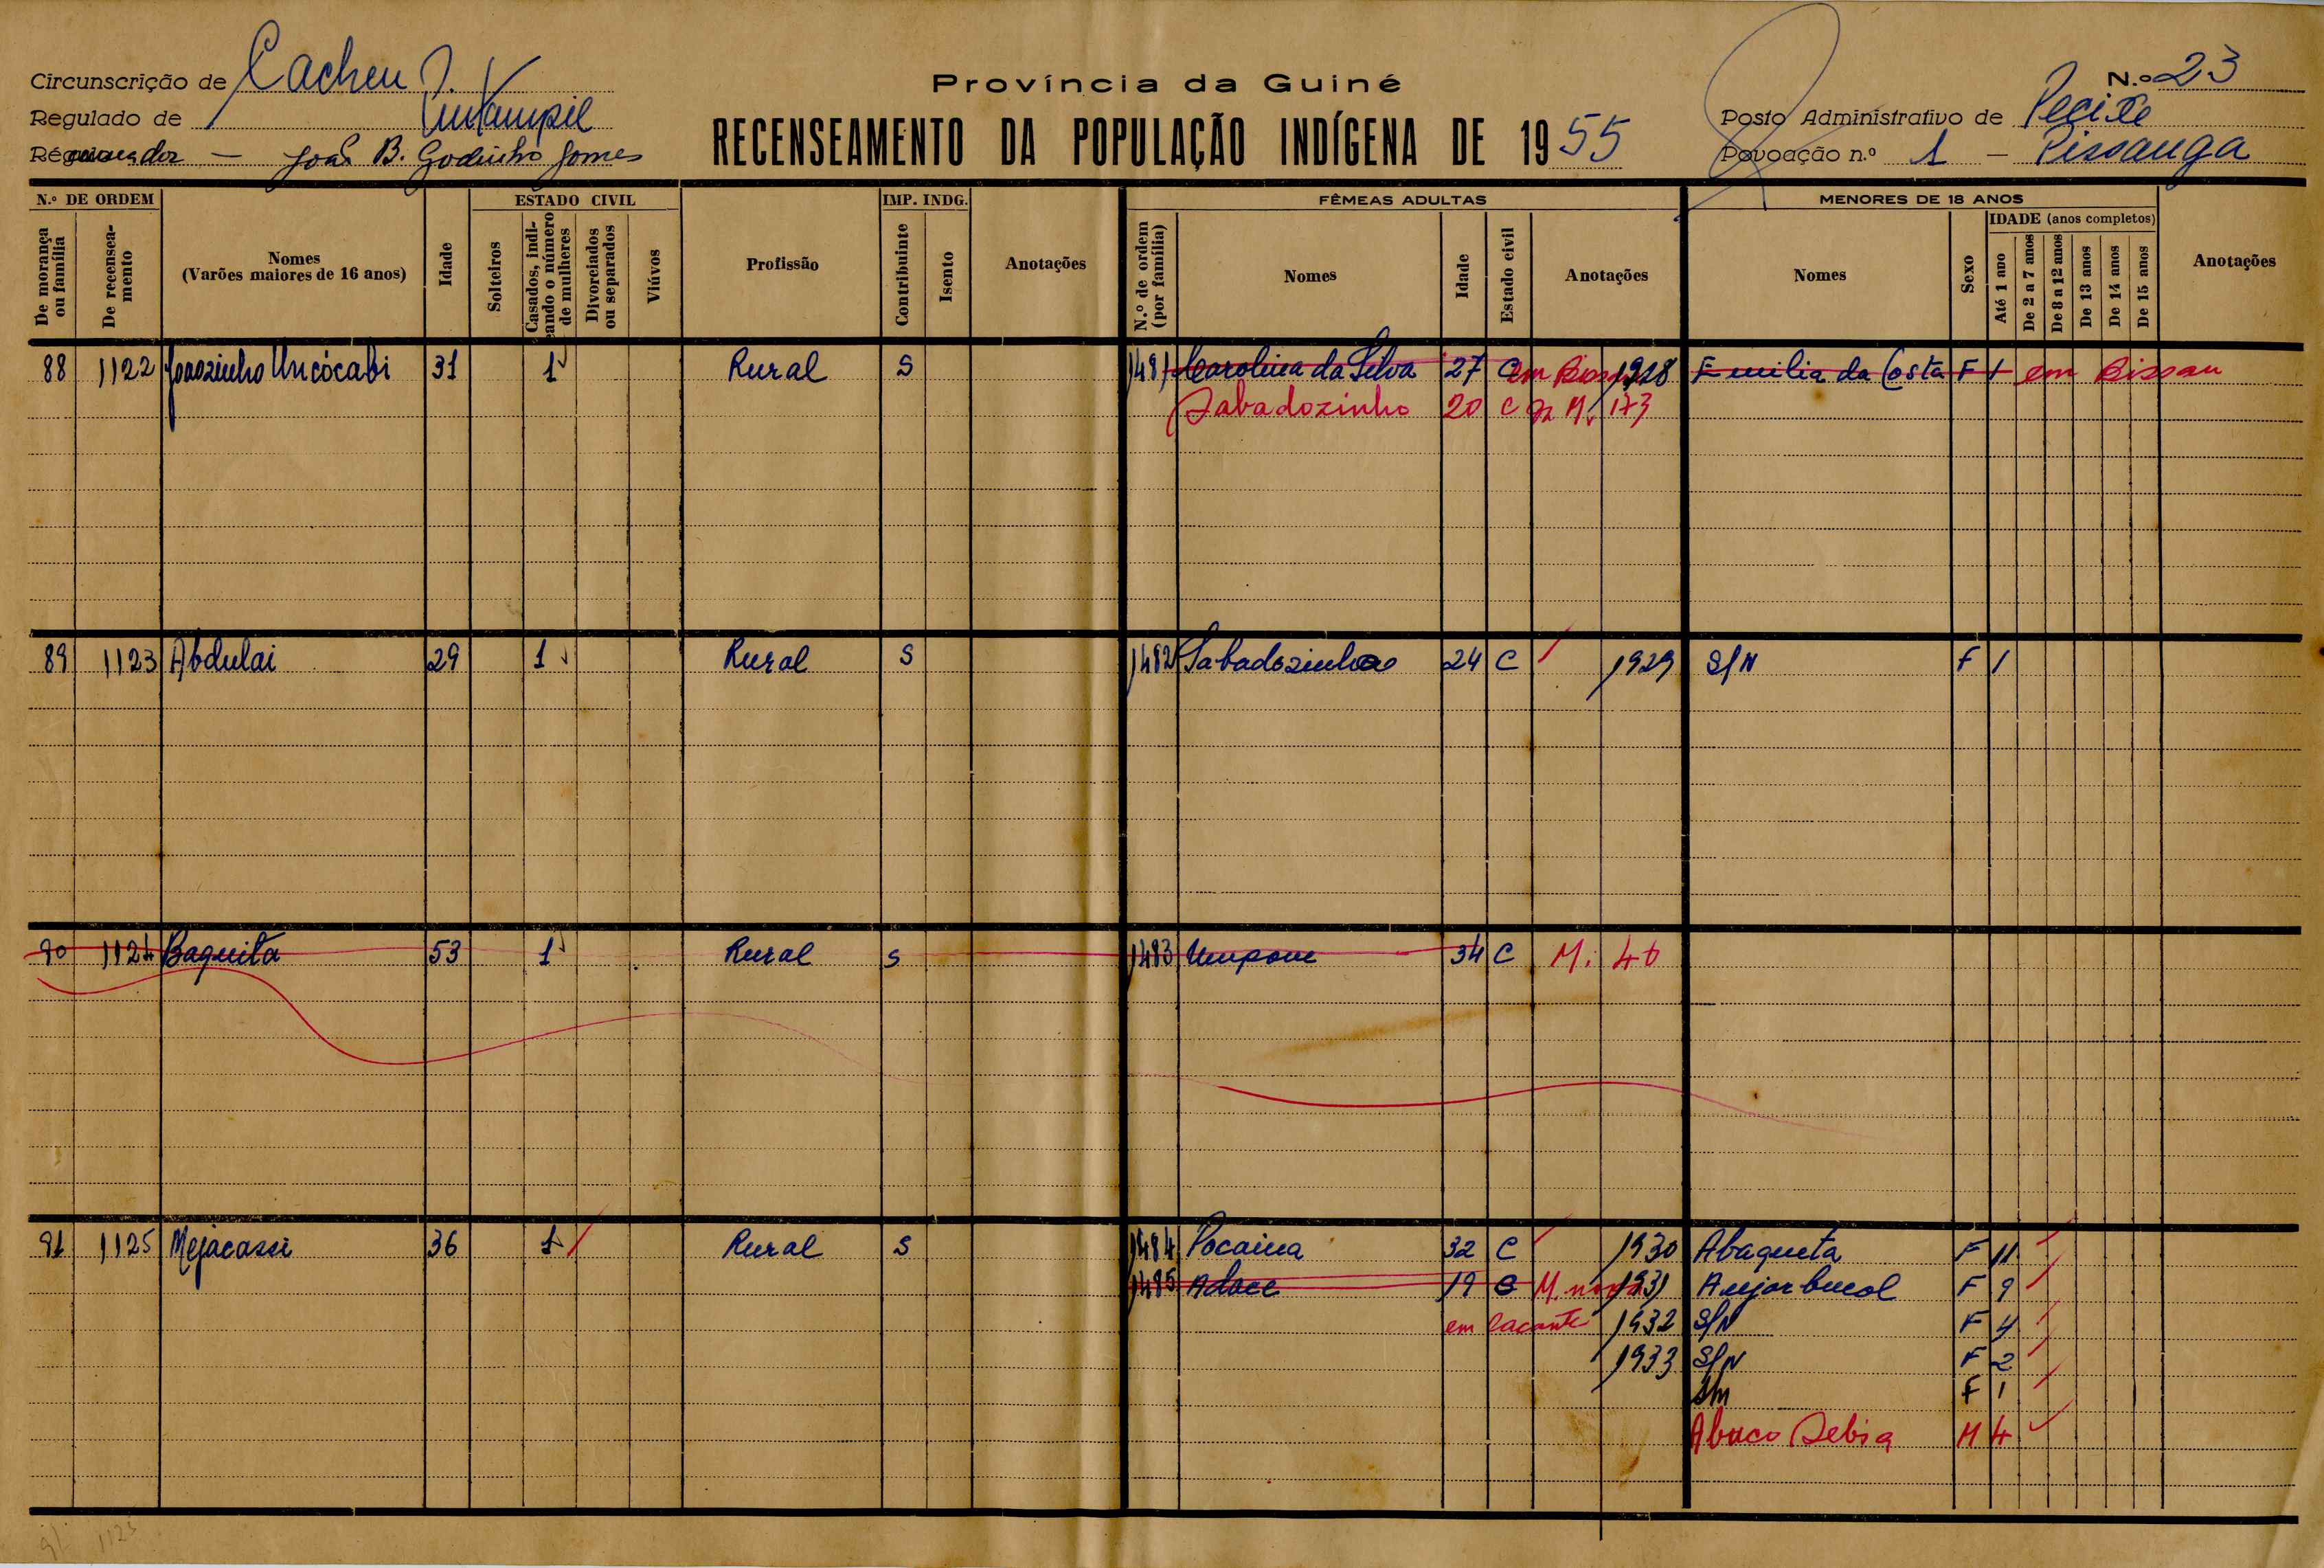 Circunscrição de Cacheu Província da Guiné N.º 23
Regulado de Posto Administrativo de Pecixe
João B. Godinho Gomes RECENSEAMENTO DA POPULAÇÃO INDÍGENA DE 1955 Povoação n.º 1 - Pissanga
N.º DE ORDEM ESTADO CIVIL IMP. INDG. FÊMEAS ADULTAS MENORES DE 18 ANOS
IDADE (anos completos)
De morança ou família De recenseamento Nomes (Varões maiores de 16 anos) Idade Solteiros Casados, indicando o número de mulheres Divorciados ou separados Viúvos Profissão Contribuinte Isento Anotações N.º de ordem (por família) Nomes Idade Estado civil Anotações Nomes Sexo Até 1 ano De 2 a 7 anos De 8 a 12 anos De 13 anos De 14 anos De 15 anos Anotações
88 1122 Joaozinho Uncócabi 31 1 Rural S 1481 Carolina da Silva 27 C em Bissau 1928 Emilia da Costa F 1 em Bissau
Sabadozinho 20 C M. 173
89 1123 Abdulai 29 1 Rural S 1482 Sabadozinho 24 C 1929 S/N F 1
90 1124 Baquita 53 1 Rural S 1483 Umpone 34 C M. 40
91 1125 Mejacassi 36 1 Rural S 1484 Pocaina 32 C 1930 Abaqueta F 11
1485 Adace 19 C M. 1931 F 9
em 1932 S/N F 4
1933 S/N F 2
S/n F 1
Abuco M 4
91 1125